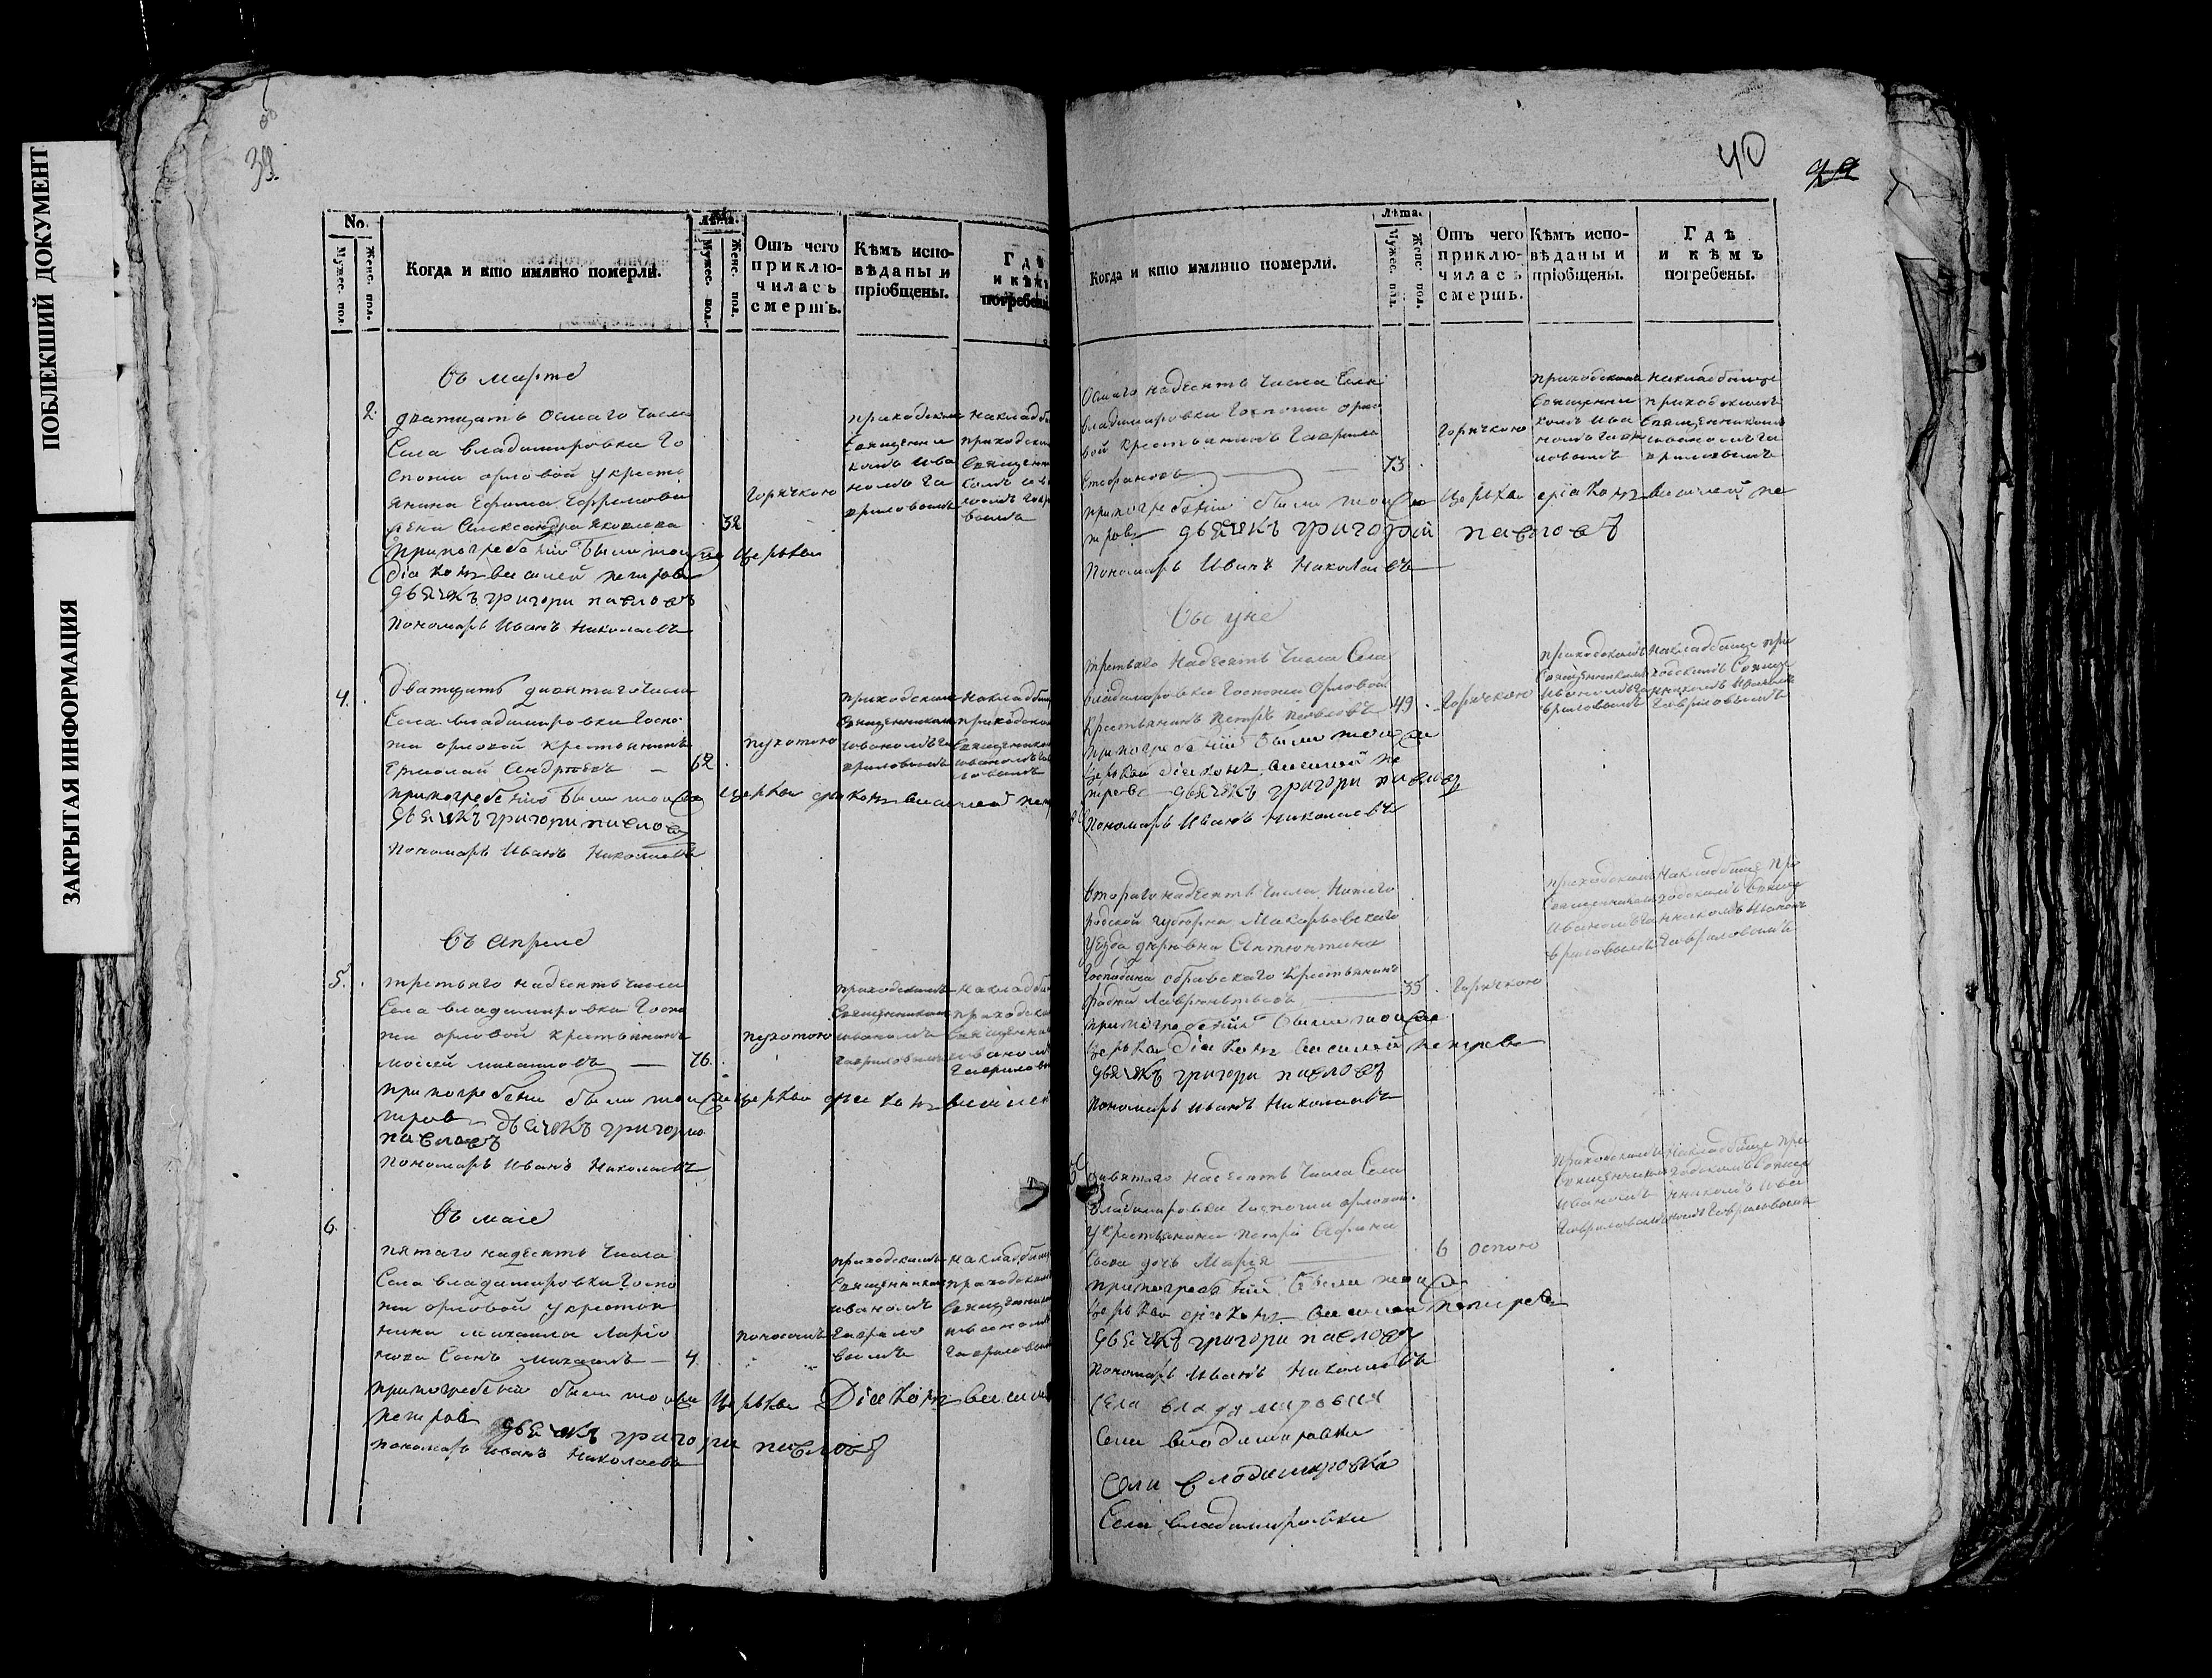 ПОБЛЕКШИЙ ДОКУМЕНТ
ЗАКРЫТАЯ ИНФОРМАЦИЯ
39.
No.
Мужес. пол.
Женс. пол.
Когда и кто имянно померли.
Лѣта.
Мужес. пол.
Женс. пол.
Отъ чего приклю-
чилась
смерть.
Кѣмъ испо-
вѣданы и
пріобщены.
Гдѣ
и кѣмъ
погребены
Въ марте
2.
дватцать осмаго числа
Села владимировки Го
спожи орловой у крестъ
янина Ефима Ефремова
жена Александра Яковлева
32
горячкою
приходским
Священни
комъ Ива
номъ Га
вриловымъ
на кладби
приходским
при погребении были тои же церькви
діаконъ василей петровъ
дьячекъ григори павловъ
пономарь Иванъ Николаевъ
4.
дватцать девятаго числа
Села владимировки Госпо
жи орловой крестьянинъ
Ермолай Андреевъ — 62
приходским
Священником
иваномъ Га
вриловымъ
на кладби
приходским
при погребении были тои же церкви диаконъ василей пет
дьячекъ григори павловъ
пономарь Иванъ Николаевъ
Въ Апреле
5.
третьяго надесять числа
Села владимировки Госпо
жи орловой крестьянинъ
моисей михаиловъ — 76.
приходскимъ
Священником
иваномъ
Гавриловымъ
на кладби
приходским
при погребени были тои же церкви диаконъ василей
петровъ дьячекъ григори
павловъ
пономарь Иванъ Николаевъ
6.
Въ маіе
пятаго надесять числа
Села владимировки Госпо
жи орловой у крестья
нина михаила Ларіо
нова Сынъ михаилъ — 4
поносомъ
приходскимъ
Священником
иваномъ
Гаврило
вымъ
на кладби
приходским
при погребеніи были тои же церькви Діаконъ васил
петровъ дьячекъ григори павловъ
пономарь иванъ Николаевъ
40
79
Когда и кто имянно померли.
Лѣта.
Мужес. пол.
Женс. пол.
Отъ чего
приклю-
чилась
смерть.
Кѣмъ испо-
вѣданы и
пріобщены.
Гдѣ
и кѣмъ
погребены.
Осмаго надесять числа Села
владимировки Госпожи орло
вой крестьянинъ Гаврила
Стефановъ — 73
горячкою
приходскимъ
Священни
комъ Ива
номъ Гаври
ловымъ
на кладбище
приходскимъ
Священникомъ
иваномъ Га
вриловымъ
при погребении были тои же церкви діаконъ василей пе
тровъ дьячекъ григорий павловъ
пономарь Иванъ Николаевъ
третьяго надесять числа Села
владимировки Госпожи Орловой
крестьянинъ петръ 49 горячкою
приходскимъ
Священникомъ
Иваномъ Га
вриловымъ
на кладбище при
ходскимъ Свяще
нникомъ Иваномъ
Гавриловымъ
при погребеніи были тои же
церькви діаконъ василей пе
тровъ дьячекъ григори павловъ
пономарь Иванъ Николаевъ
второго надесять числа Нижего
родской губерни Макарьевского
уезда деревни
Господина крестьянинъ
35 горячкою
приходскимъ
Священникомъ
Иваномъ Га
вриловымъ
на кладбище при
ходскимъ Свяще
нникомъ Иваномъ
Гавриловымъ
при погребении были тои же
церькви діаконъ василей петровъ
дьячекъ григори павловъ
пономарь иванъ Николаевъ
девятаго надесять числа Села
Владимировки Госпожи орловой
у крестьянина
дочь Марія — 6 оспою
приходскимъ
Священником
Иваномъ
Гавриловым
на кладбище при
ходскимъ Свяще
нникомъ Ива
номъ Гавриловым
при погребений были тои же
церкви діаконъ василей петровъ
дьячекъ григори павловъ
пономарь Иванъ Николаевъ
Села
Села владимировки
Села
Села владимировки